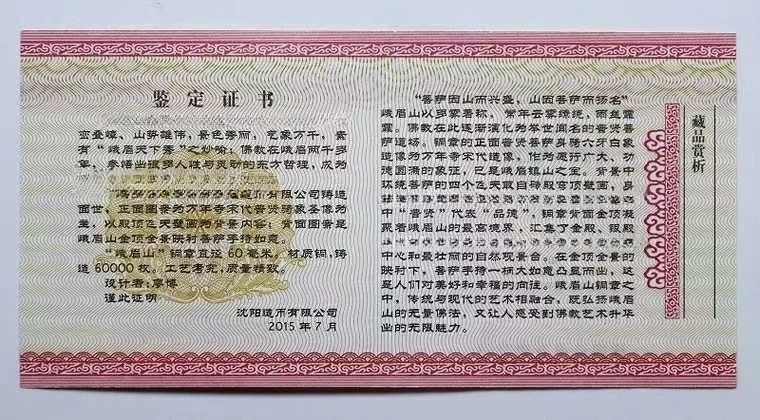 鉴定证书
峦叠嶂、山势雄伟，景色秀丽；气象万千，素
有“峨眉天下秀”之妙喻；佛教在峨眉两千多
年，
有限公司铸造
面世，正面图案为万年寺宋代普贤骑象圣像为
主，以殿顶飞天壁画为背景内容；背面图案是
峨眉山金顶全景映衬菩萨手持如意。
“峨眉山”铜章直径 60 毫米。材质铜，铸
造 60000 枚。工艺考究，质量精致。
设计者：廖博
谨此证明
沈阳造币有限公司
2015 年 7 月
藏品赏析
“菩萨因山而兴盛，山因菩萨而扬名”
峨眉山以多雾著称，常年云雾缭绕，雨丝霏
霏。佛教在此逐渐演化为举世闻名的普贤菩
萨道场。铜章的正面普贤菩萨身骑六牙白象
造像为万年寺宋代造像，作为愿行广大、功
德圆满的象征，已是峨眉镇山之宝。背景中
环绕菩萨的四个飞天取自砖殿穹顶壁画，身
中“普贤”代表“品德”，铜章背面金顶凝
聚着峨眉山的最高境界，汇集了金殿、银殿
中心和最壮丽的自然观景台。在金顶全景的
映衬下，菩萨手持一柄大如意凸显而出，这
是人们对美好和幸福的向往。峨眉山铜章之
中，传统与现代的艺术相融合，既弘扬峨眉
山的无量佛法，又让人感受到佛教艺术升华
出的无限魅力。